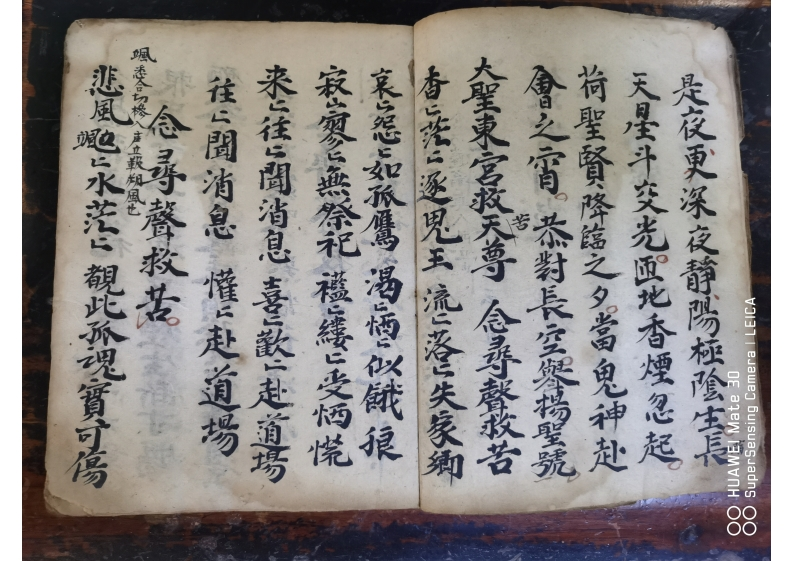 是夜更深夜靜陽極陰生長
天星斗交光匝地香煙忽起
荷聖賢降臨之夕當鬼神赴
會之宵恭對長空舉揚聖號
大聖東宮救苦天尊 念尋聲救苦
香〻茫〻逐鬼王 流〻落〻失家鄉
哀〻怨〻如孤鴈 渴〻恓〻似餓狼
寂〻寥〻無祭祀 襤〻縷〻受恓慌
来〻往〻聞消息 喜〻歡〻赴道場
往〻聞消息 懽〻赴道場
念尋聲救苦
颯悉合切
風也
悲風颯〻水茫〻 覩此孤魂實可傷
HUAWEI Mate 30
SuperSensing Camera | LEICA